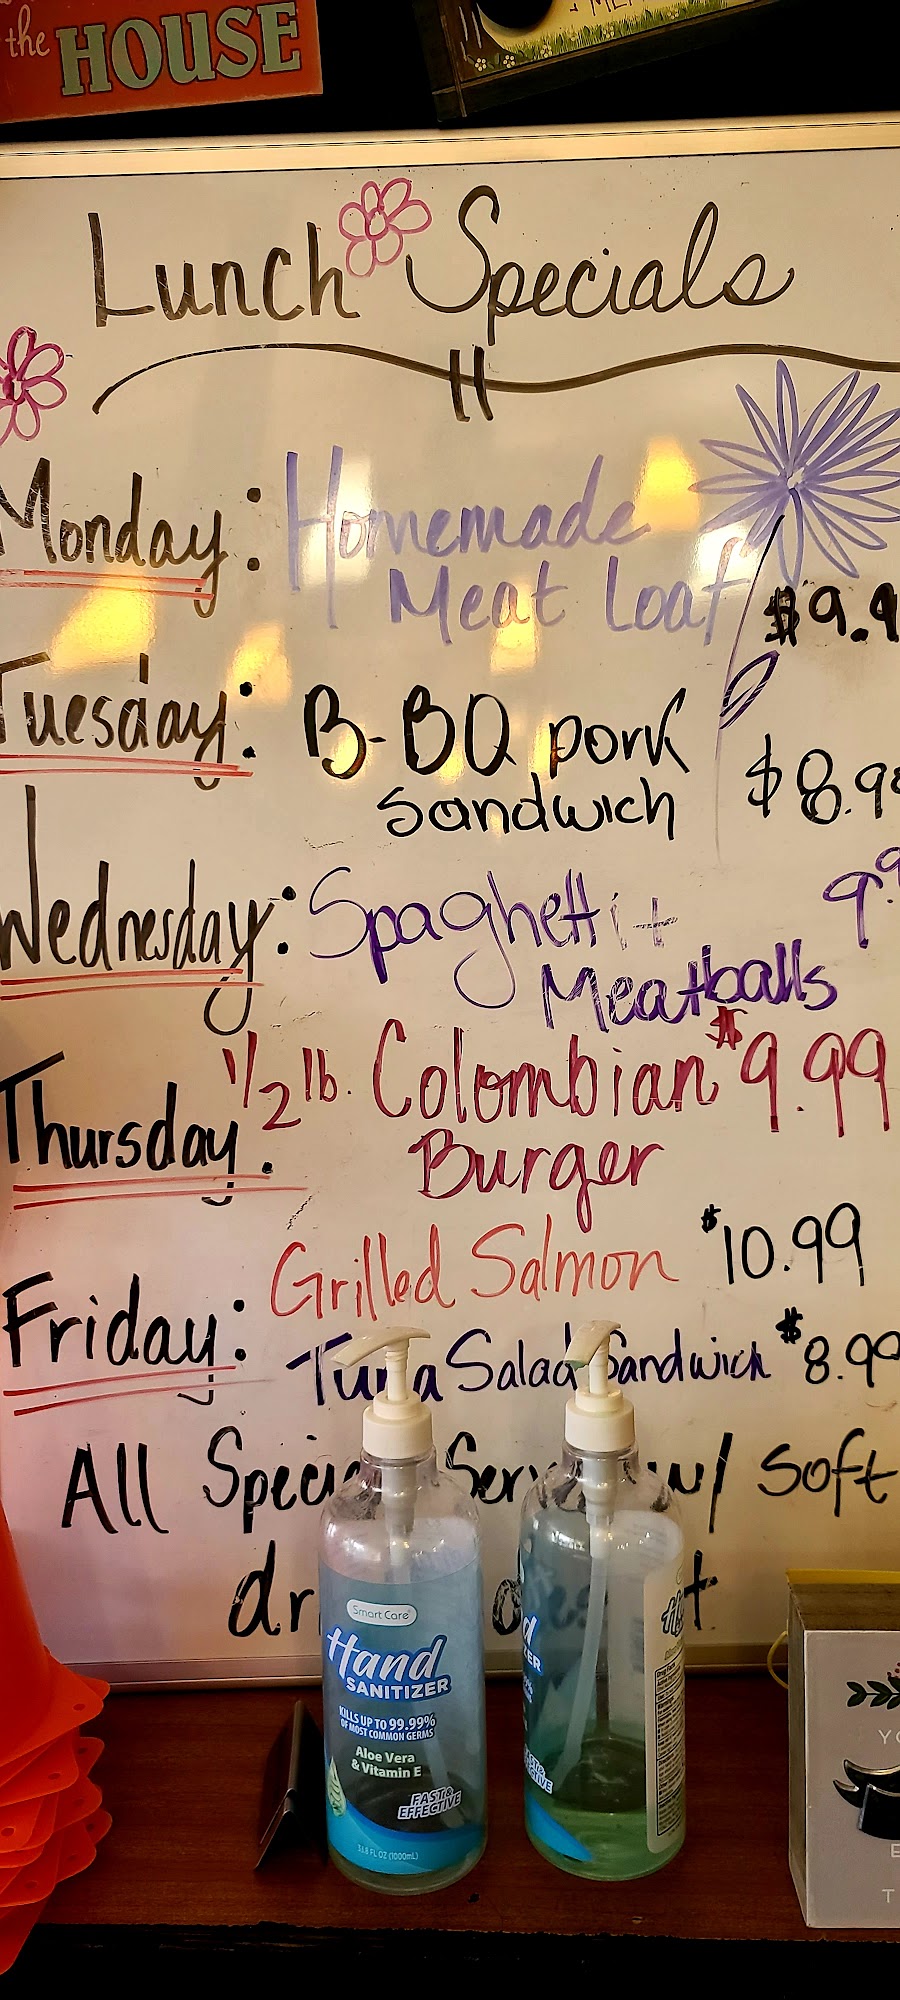 the HOUSE
Lunch Specials
Monday: Homemade
Meat Loaf $9.9
Tuesday: B-BQ pork
sandwich $8.9
Wednesday: Spaghetti + 9.9
Meatballs
Thursday: 1/2 lb. Colombian $9.99
Burger
Friday: Grilled Salmon $10.99
Tuna Salad Sandwich $8.99
All w/ Soft
Smart Care
Hand
SANITIZER
KILLS UP TO 99.99%
OF MOST COMMON GERMS
Aloe Vera
& Vitamin E
FAST &
EFFECTIVE
33.8 FL OZ (1000mL)